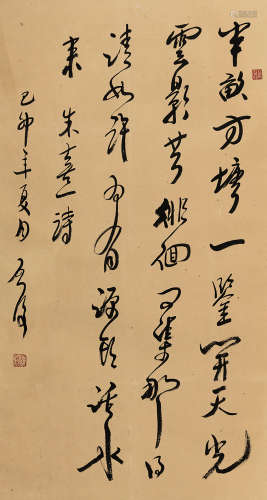 半畝方塘一鑒開天光
雲影共徘徊問渠那得
清如許為有源頭活水
來 朱熹詩
年夏月